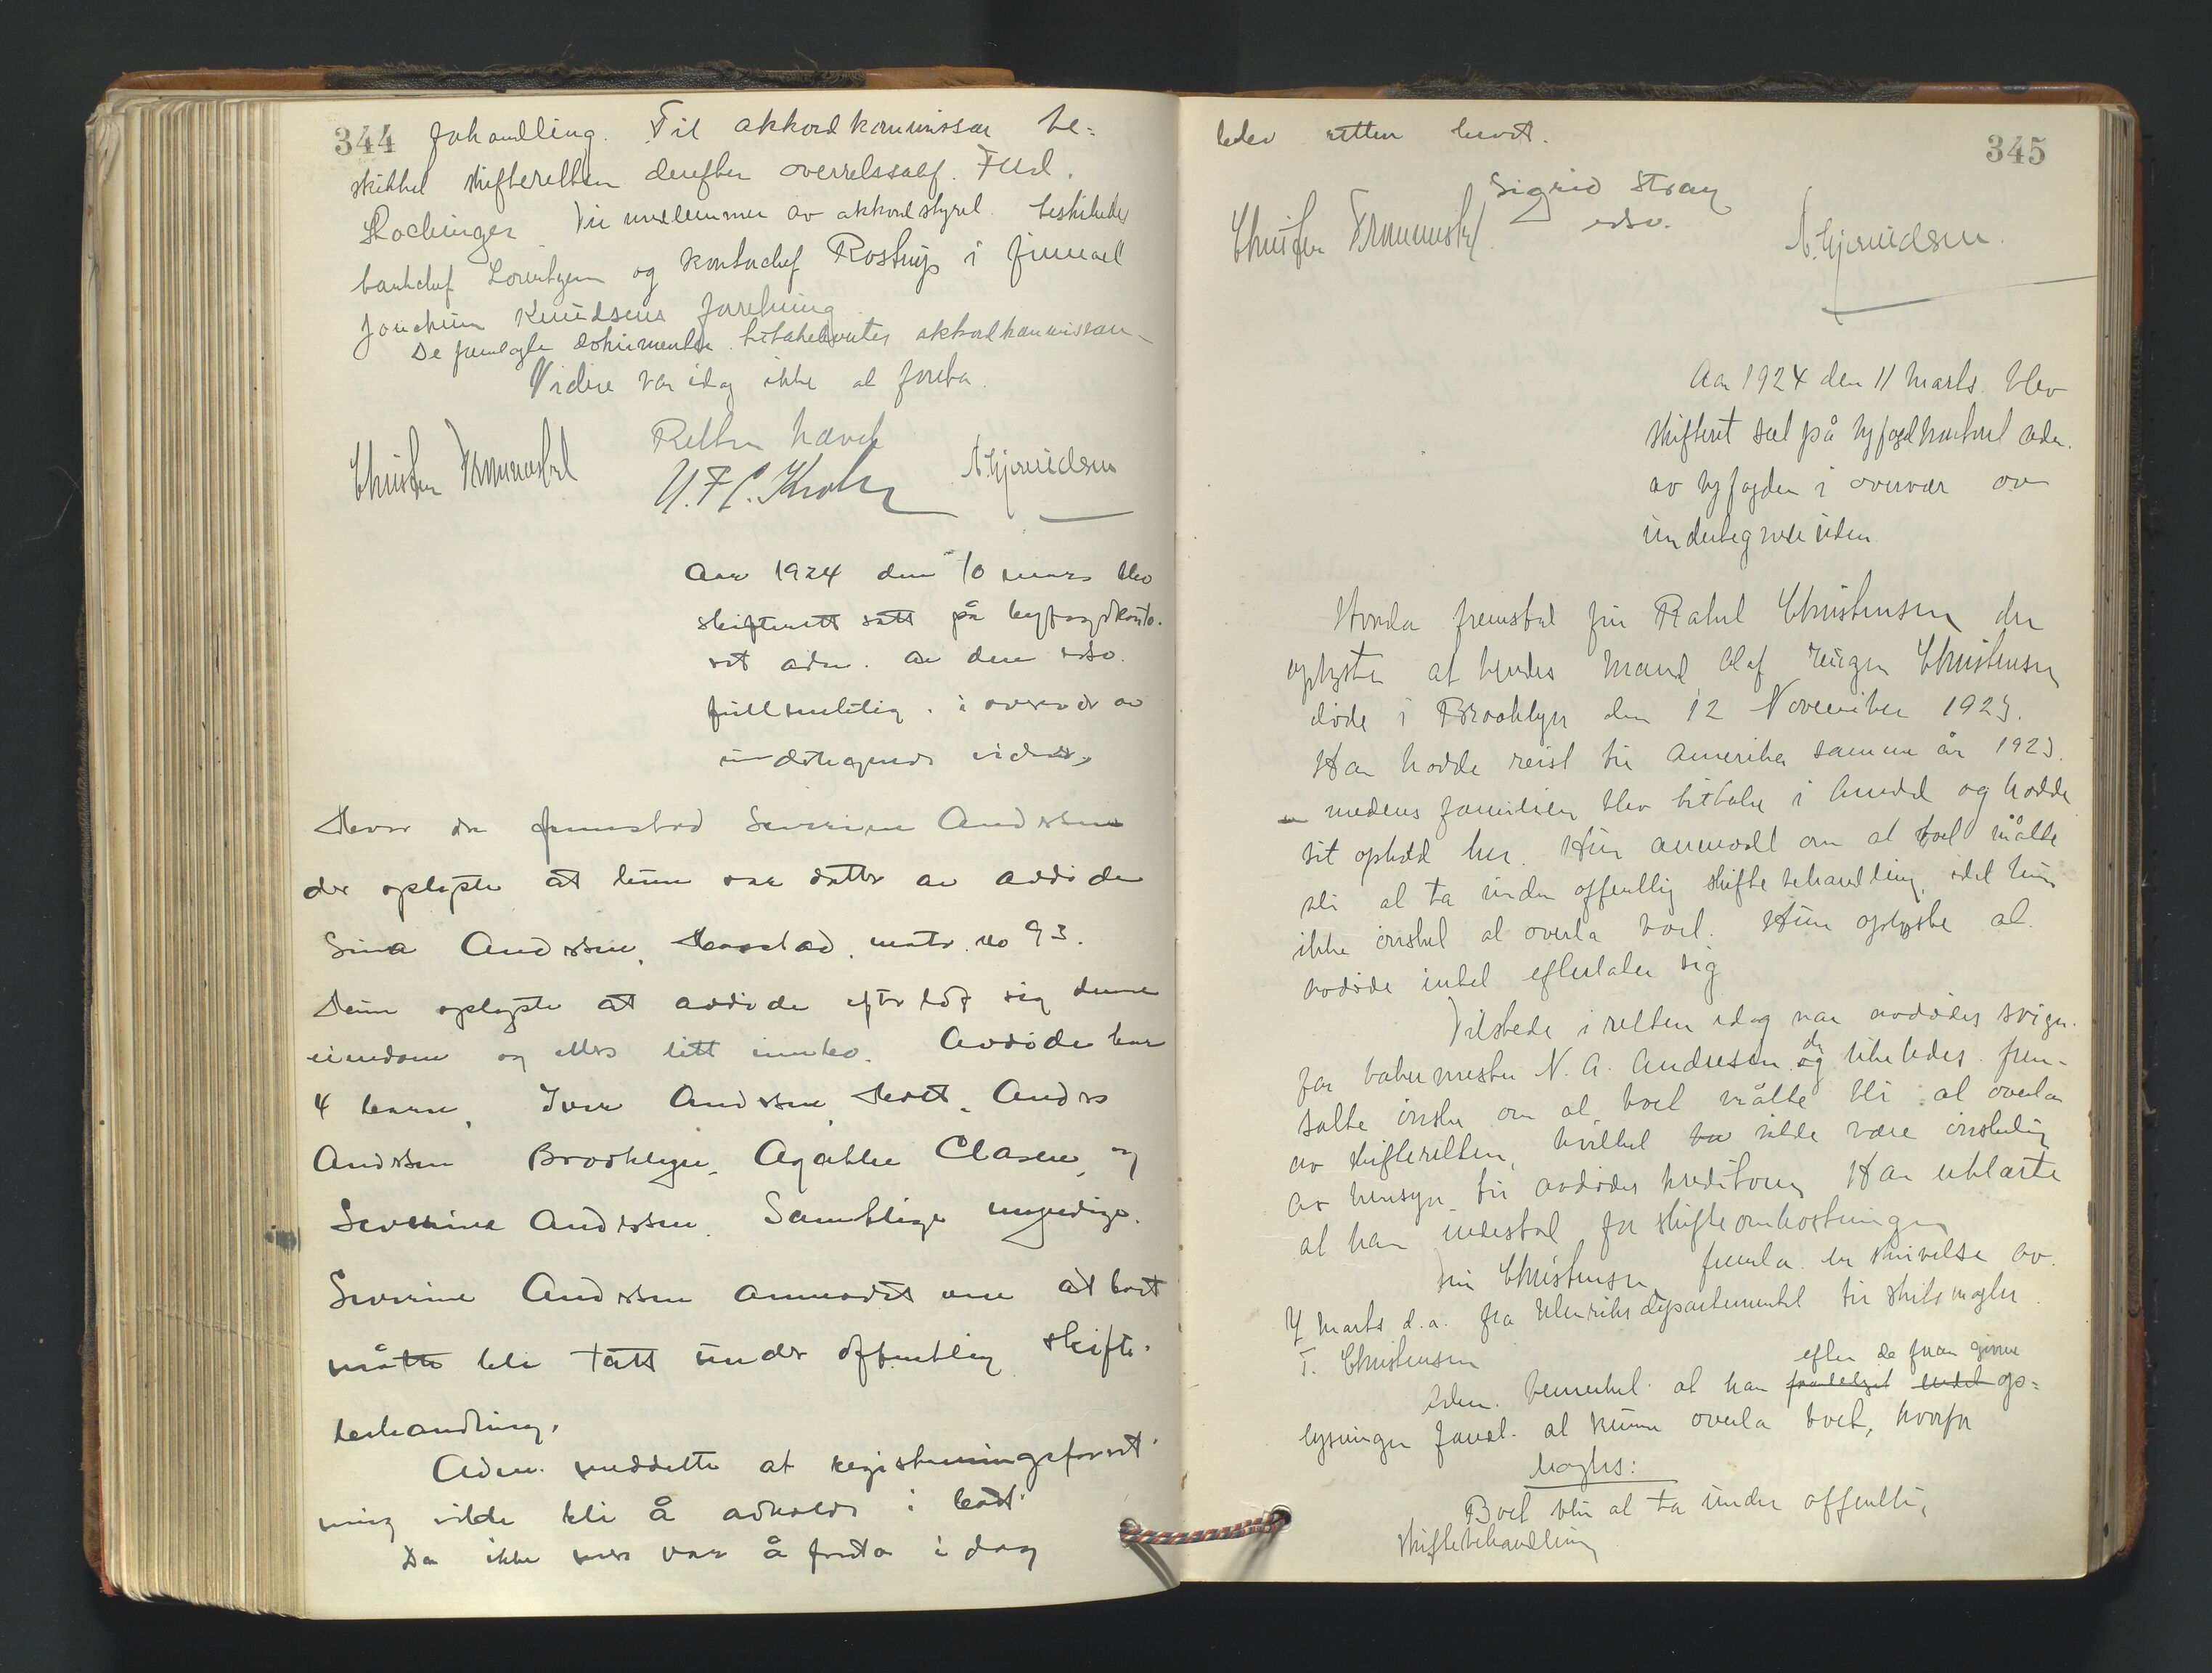 344 forhandling. Til akkordkommissær be=
skikket skifteretten derefter overretssakf. Ferd.
Rochinger Til medlemmer av akkordstyret beskikkedes
bankchef Lorentzen og kontorchef Rostrup i firmaet
Jouchim Knudsens forretning
De fremlagte dokumenter tilbakelevertes akkordkommissæren
Videre var idag ikke at foreta.
Retten hævet
Christen
U. F. C. Krohn
A. Gjernudsen
Aar 1924 den 10 mars blev
skifterett satt på byfogdkonto-
ret adm. av den edsv.
fullmektig i overvær av
undertegnede vidner,
Hvor da fremstod Severine Anderssen
der oplyste at hun var datter av avdøde
Sina Anderssen, Havstad, matr. no 93.
Hun oplyste at avdøde efterlot sig denne
eiendom og ellers litt innbo. Avdøde har
4 barn, Iver Anderssen, her, Anders
Anderssen Brooklyn, Agathe Clasen, og
Severine Anderssen. Samtlige myndige.
Severine Anderssen anmodet om at boet
måtte bli tatt under offentlig skifte-
behandling.
Adm. meddelte at registreringsforret-
ning vilde bli å avholde i boet.
Da ikke mer var å foreta i dag
blev retten hevet.
345
Sigrid Stray
edsv.
Christen
A. Gjernudsen.
Aar 1924 den 11 Marts blev
skifteret sat på byfogdkontoret adm.
av byfogden i overvær av
undertegnede vidner
Hvorda fremstod fru Rakel Christensen der
oplyste at hendes mand Olaf Jürgen Christensen
døde i Brooklyn den 12 November 1923.
Han hadde reist til Amerika samme år 1923.
medens familien blev tilbake i Arendal og hadde
sit ophold her. Hun anmodet om at boet måtte
bli at ta under offentlig skiftebehandling, idet hun
ikke ønsket at overta boet. Hun oplyste at
avdøde intet efterlater sig
Tilstede i retten idag var avdødes sviger-
far bakermester N. A. Andresen der likeledes frem-
satte ønske om at boet måtte bli at overta
av skifteretten, hvilket vilde være ønskelig
av hensyn til avdødes kreditorer. Han erklærte
at han indestod for skifteomkostningene
Fru Christensen fremla en skrivelse av
4 marts d.a. fra Utenriksdepartementet til skibsmægler
T. Christensen
Adm. bemerket at han efter de foran givne op=
lysninger fandt at kunne overta boet, hvorfor
sagtes:
Boet blir at ta under offentlig
skiftebehandling